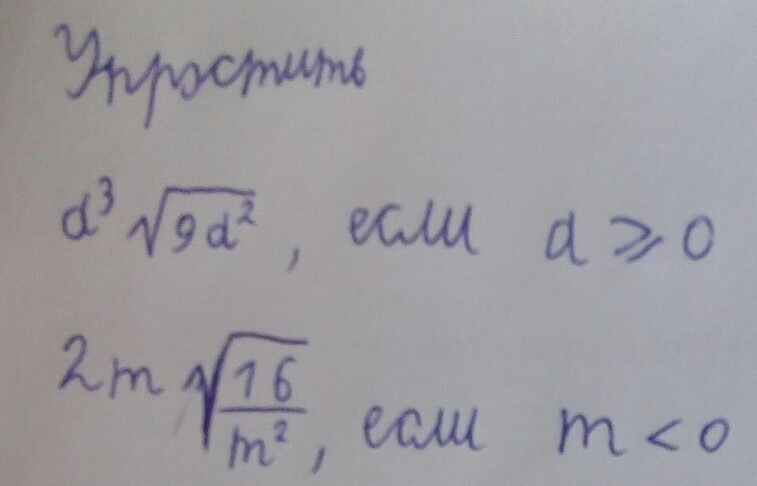 Упростить
d³√9d², если d ⩾ 0
2m√16/m², если m < 0